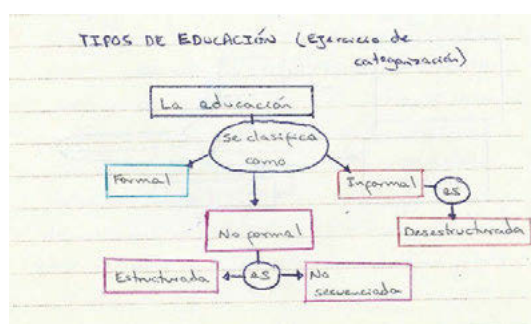 TIPOS DE EDUCACIÓN (Ejercicio de
categorización)
La educación
Se clasifica
como
Formal
Informal
es
No formal
Desestructurada
Estructurada
es
No
secuenciada